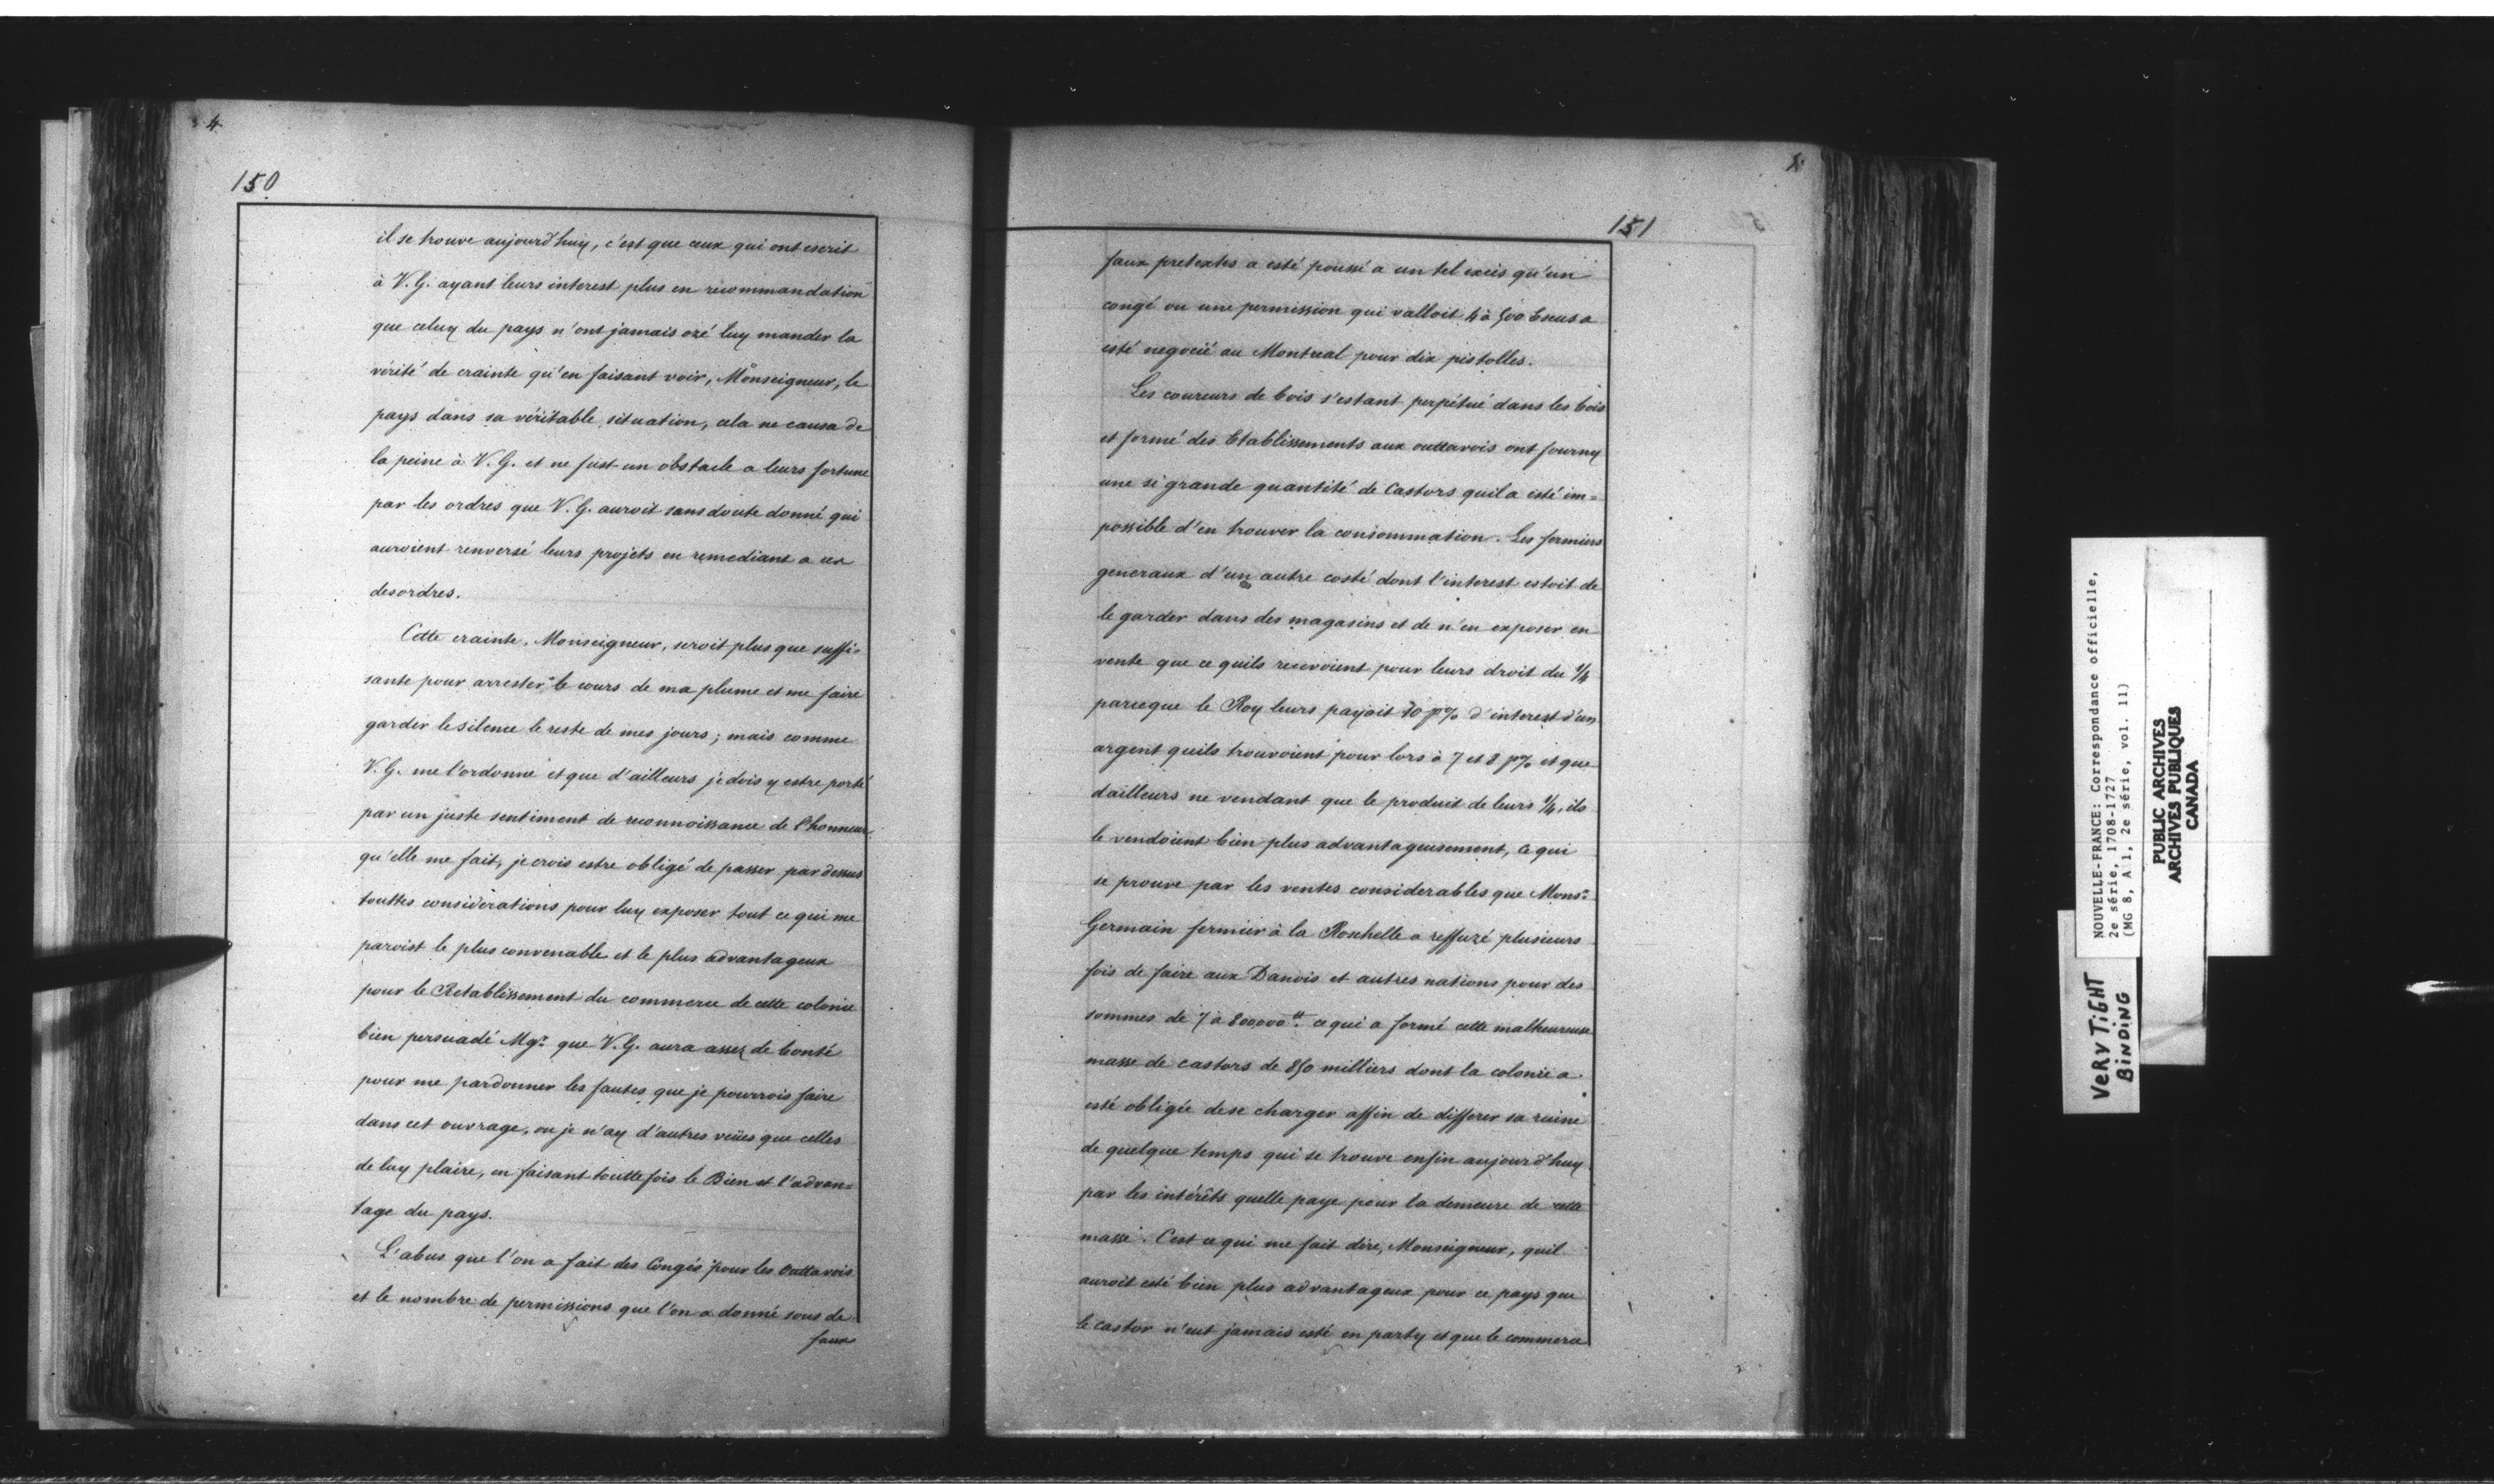 4
150
il se trouve aujourd'huy, c'est que ceux qui ont escrit
à V. G. ayant leurs interest plus en recommandation
que celuy du pays n'ont jamais ozé luy mander la
vérité de crainte qu'en faisant voir, Monseigneur, le
pays dans sa véritable situation, cela ne causa de
la peine à V. G. et ne fust un obstacle a leurs fortune
par les ordres que V. G. auroit sans doute donné qui
auroient renversé leurs projets en remediant a ces
desordres.
Cette crainte, Monseigneur, seroit plus que suffi=
sante pour arrester le cours de ma plume et me faire
garder le silence le reste de mes jours; mais comme
V. G. me l'ordonne et que d'ailleurs je dois y estre porté
par un juste sentiment de reconnoissance de l'honneur
qu'elle me fait, je crois estre obligé de passer par dessus
touttes considérations pour luy exposer tout ce qui me
paroist le plus convenable et le plus advantageux
pour le Retablissement du commerce de cette colonie
bien persuadé Mgr. que V. G. aura assez de bonté
pour me pardonner les fautes que je pourrois faire
dans cet ouvrage, ou je n'ay d'autres veües que celles
de luy plaire, en faisant touttefois le Bien et l'advan=
tage du pays.
L'abus que l'on a fait des Congés pour les Outtavois
et le nombre de permissions que l'on a donné sous de
faux
151
faux pretextes a esté poussé a un tel excès qu'un
congé ou une permission qui valloit 4 à 500 Escus a
esté negocié au Montreal pour dix pistolles.
Les coureurs de bois s'estant perpétué dans les bois
et formé des Etablissements aux outtavois ont fourny
une si grande quantité de Castors quil a esté im=
possible d'en trouver la consommation. Les fermiers
generaux d'un autre costé dont l'interest estoit de
le garder dans des magasins et de n'en exposer en
vente que ce quils recevoient pour leurs droit du 1/4
parceque le Roy leurs payoit 10 p% d'interest d'un
argent quils trouvoient pour lors à 7 et 8 p% et que
dailleurs ne vendant que le produit de leurs 1/4, ils
le vendoient bien plus advantageusement, ce qui
se prouve par les ventes considerables que Monsr.
Germain fermier à la Rochelle a reffuzé plusieurs
fois de faire aux Danois et autres nations pour des
sommes de 7 à 800000 tt. ce qui a formé cette malheureuse
masse de castors de 850 milliers dont la colonie a
esté obligée de se charger affin de differer sa ruine
de quelque temps qui se trouve enfin aujourd'huy
par les intérêts quelle paye pour la demeure de cette
masse. C'est ce qui me fait dire, Monseigneur, quil
auroit esté bien plus advantageux pour ce pays que
le castor n'eut jamais esté en party et que le commerce
NOUVELLE-FRANCE: Correspondance officielle,
2e série, 1708-1727
(MG 8, A 1, 2e série, vol. 11)
PUBLIC ARCHIVES
ARCHIVES PUBLIQUES
CANADA
VERY TIGHT
BINDING